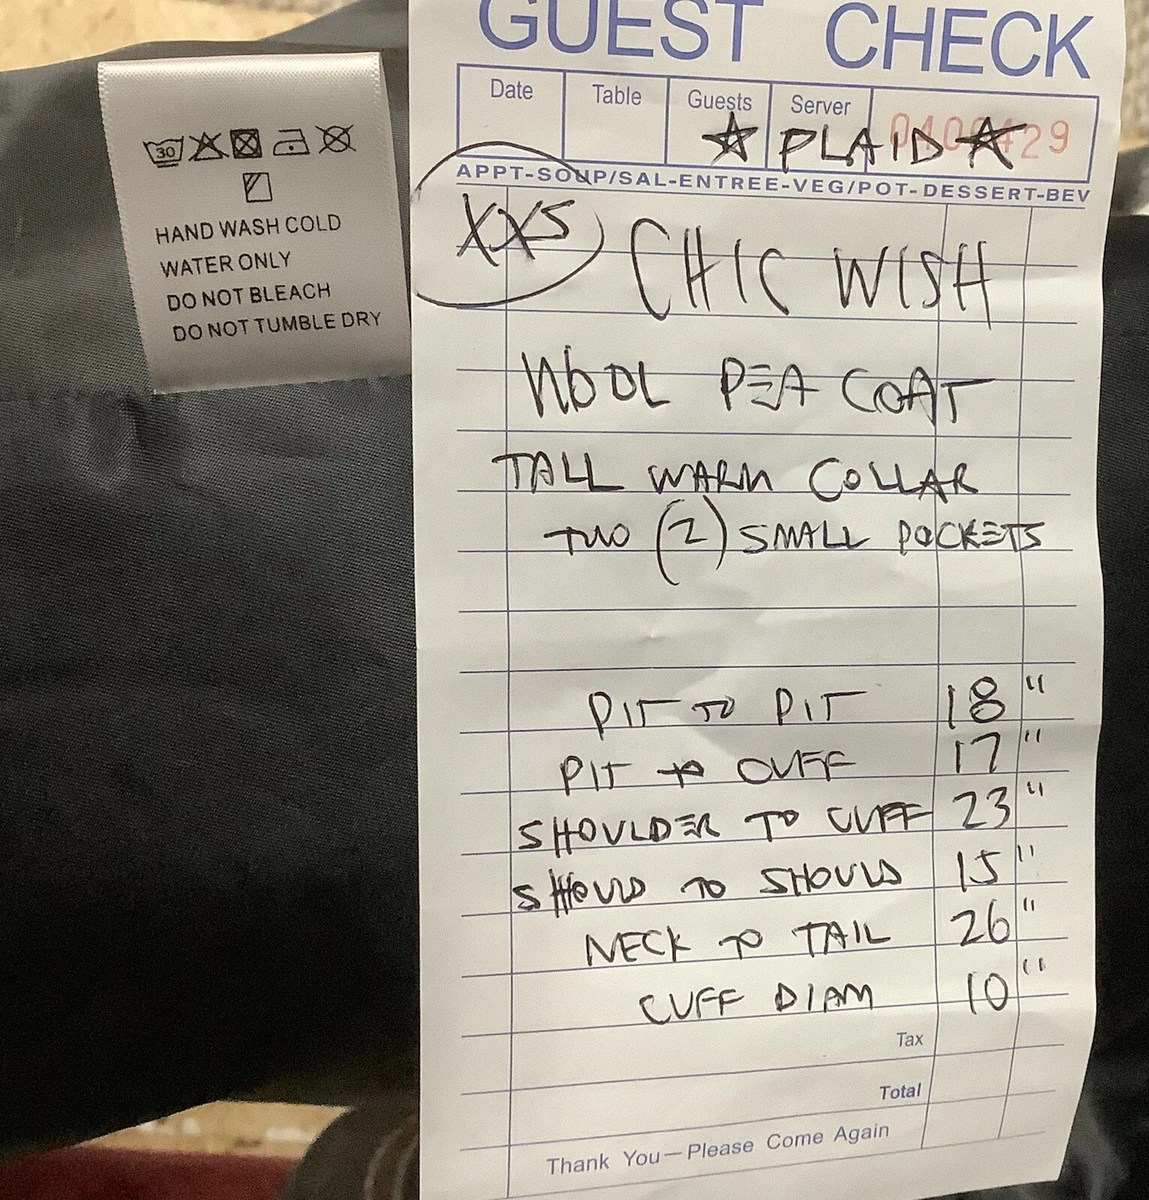 30
HAND WASH COLD
WATER ONLY
DO NOT BLEACH
DO NOT TUMBLE DRY
GUEST CHECK
Date Table Guests Server
☆ PLAID ☆
APPT-SOUP/SAL-ENTREE-VEG/POT-DESSERT-BEV
XXS CHIC WISH
WOOL PEA COAT
TALL WARM COLLAR
TWO (2) SMALL POCKETS
PIT TO PIT 18"
PIT TO CUFF 17"
SHOULDER TO CUFF 23"
SHOULD TO SHOULD 15"
NECK TO TAIL 26"
CUFF DIAM 10"
Tax
Total
Thank You—Please Come Again